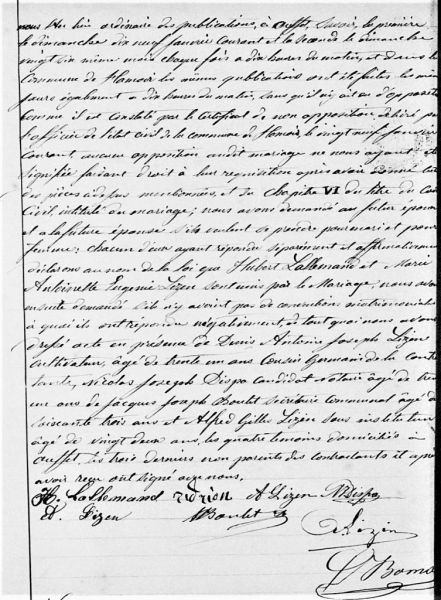 lieu ordinaire des publications, à Ouffet, savoir, la première
le dimanche dix neuf janvier courant et la seconde le dimanche
vingt six même mois chaque fois à dix heures du matin, et dans la
Commune de Hamoir les mêmes publications ont été faites les mêmes
jours également à dix heures du matin, sans qu'il y ait eu d'opposition
comme il est constaté par le Certificat de non opposition délivré par
l'officier de l'état civil de la commune de Hamoir, le vingt neuf janvier
courant, aucune opposition audit mariage ne nous ayant été
signifiée faisant droit à leur requisition après avoir donné lecture
des pièces ci dessus mentionnées, et du chapitre VI du titre du Code
Civil, intitulé du mariage; nous avons demandé au futur époux
et à la future épouse s'ils veulent se prendre pour mari et pour
femme: chacun d'eux ayant répondu séparément et affirmativement
déclarons au nom de la loi que Hubert Lallemand et Marie
Antoinette Eugénie Lizen sont unis par le Mariage; nous avons
ensuite demandé s'il y avait pas de conventions matrimoniales
à quoi ils ont répondu négativement, de tout quoi nous avons
dressé acte en présence de Denis Antoine Joseph Lizen
Cultivateur, âgé de trente un ans Cousin Germain de la Contractante
Nicolas Joseph Dispa Candidat notaire âgé de
un ans de Jacques Joseph Boulet Secrétaire Communal âgé de
soixante trois ans et Alfred Gilles Lizen sous instituteur
âgé de vingt deux ans, les quatre témoins domiciliés à
Ouffet, les trois derniers non parents des contractants et après
avoir reçu ont signé avec nous.
H. Lallemand A Lizen N Dispa
D. Lizen Boulet
Lizen